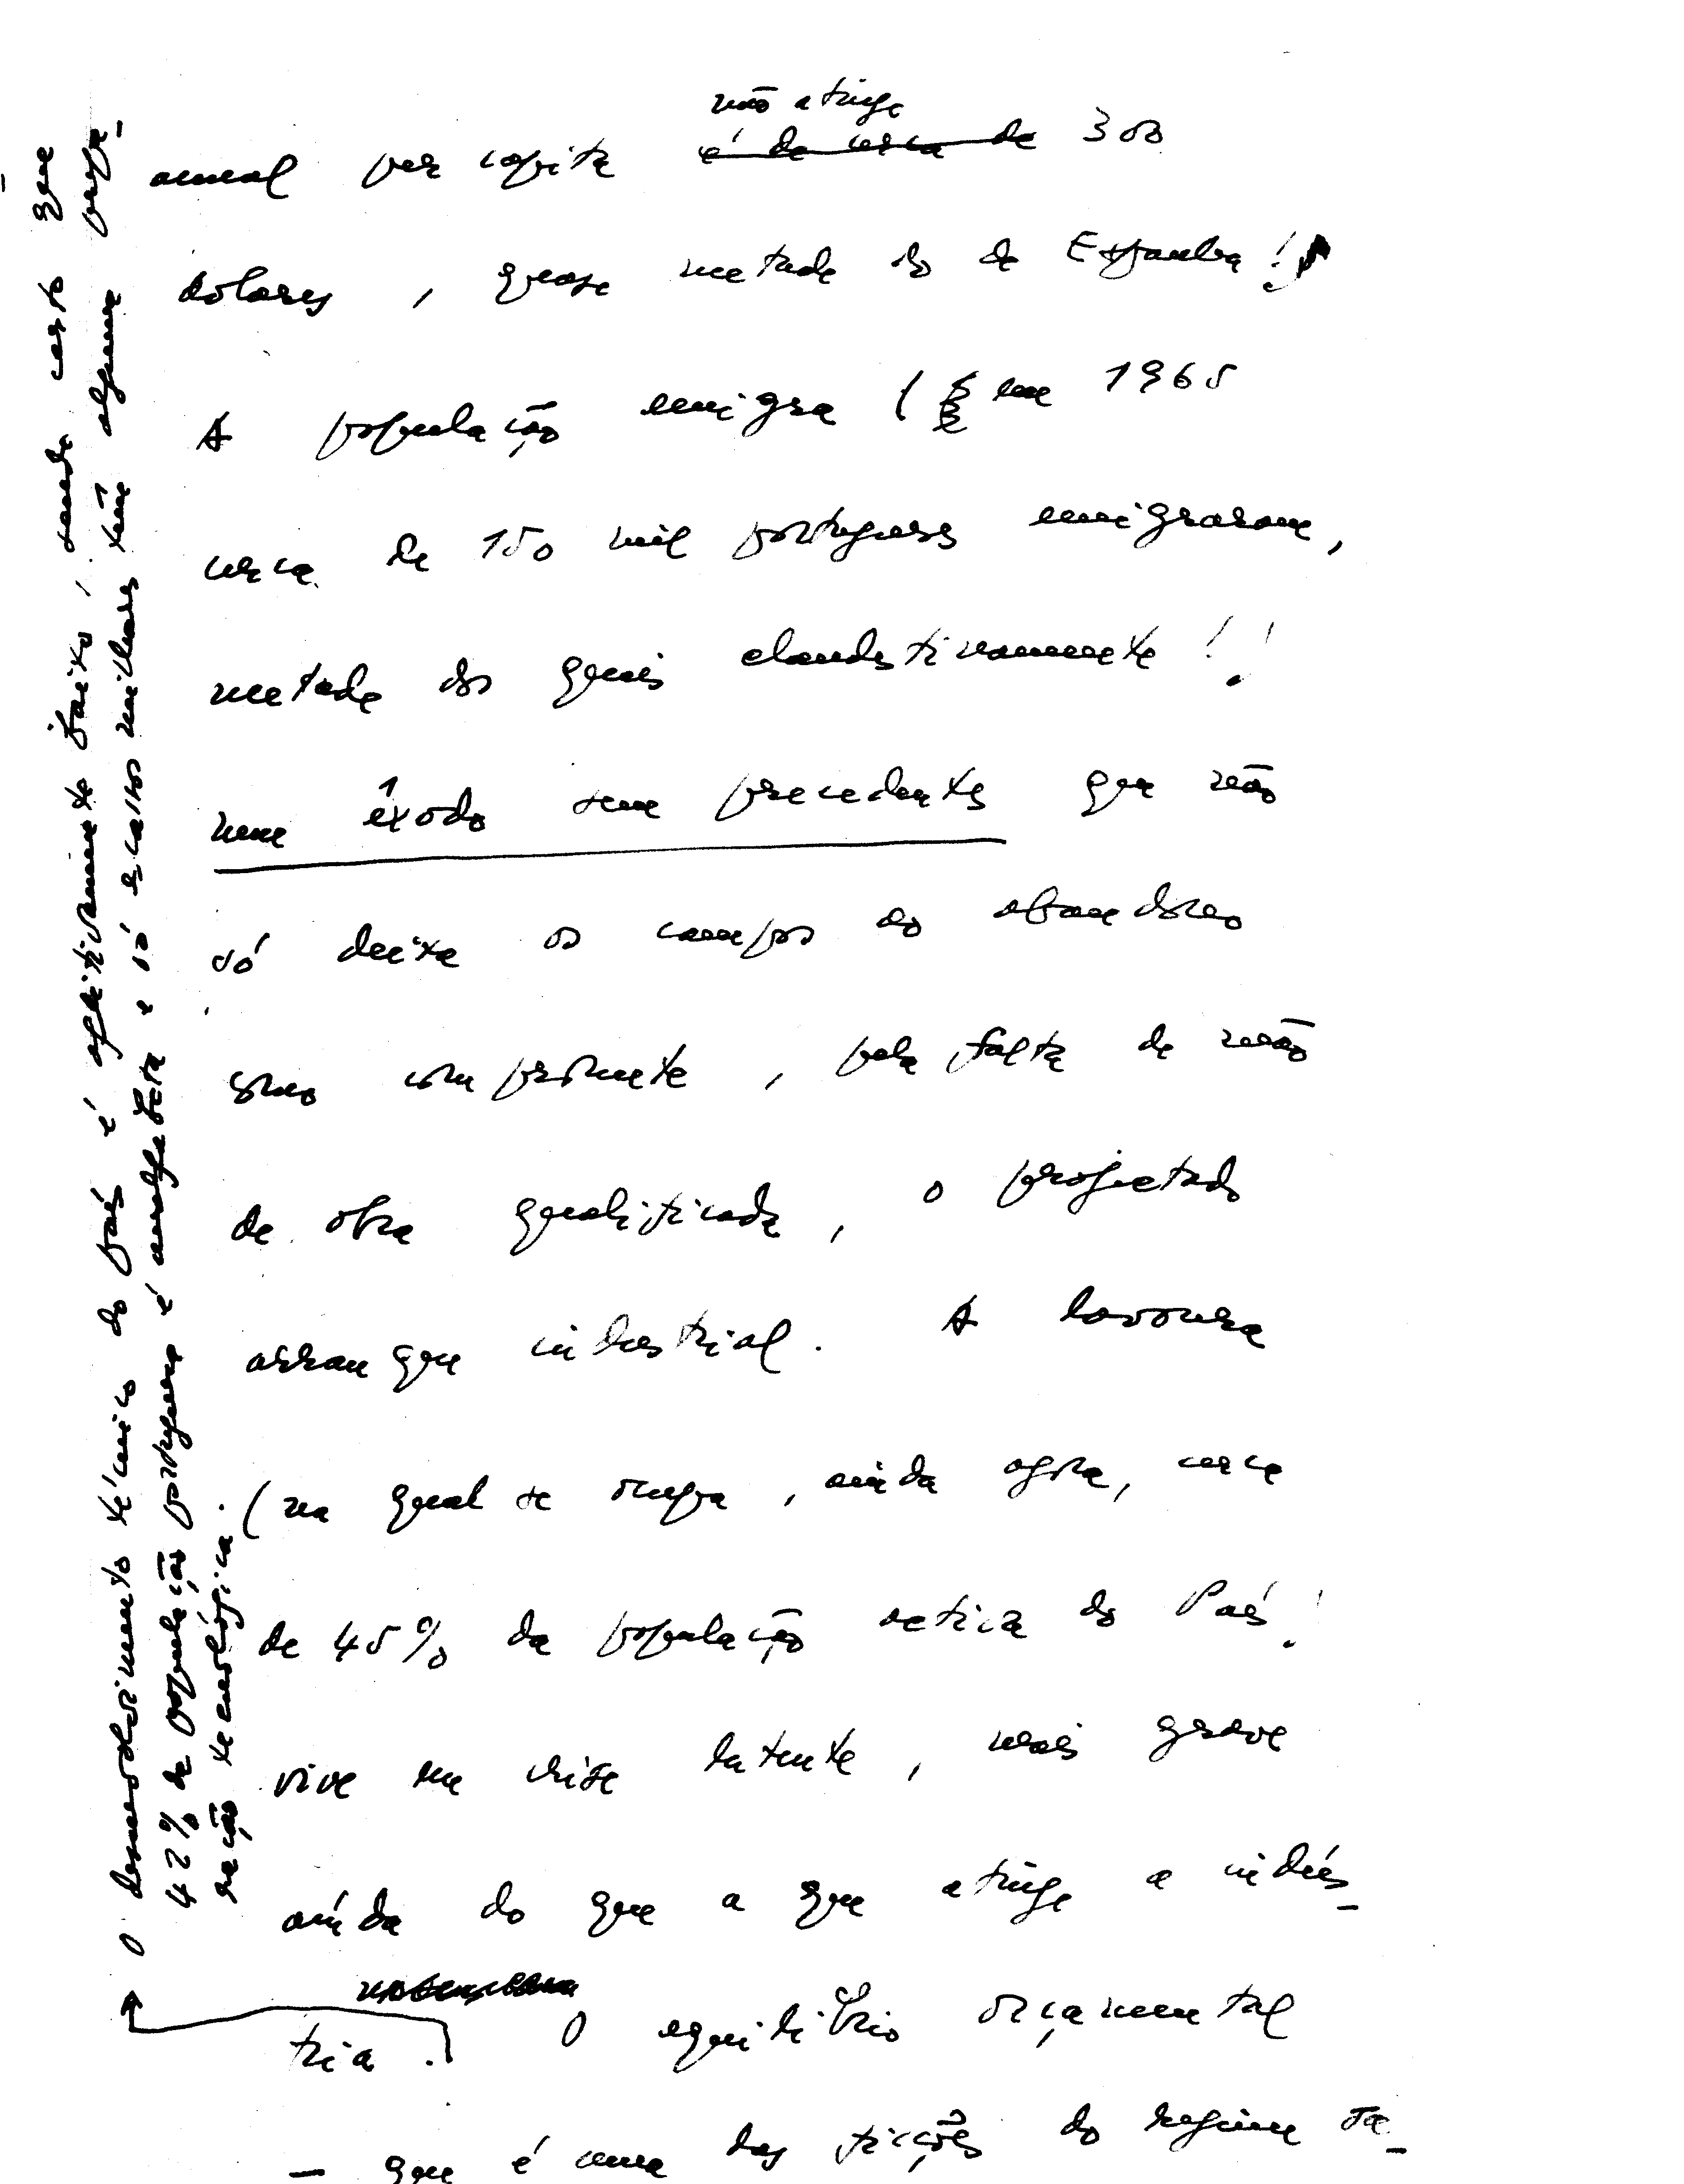 não atinge
anual per capita é de cerca de 300
dolares, quase metade do da Espanha!
A população emigra ( em 1965
cerca de 150 mil portugueses emigraram,
metade dos quais clandestinamente!!
num êxodo sem precedentes que não
só deixa os campos ao abandono
como compromete, pela falta de mão
de obra qualificada, o projectado
arranque industrial. A lavoura
(na qual se ocupa, ainda agora, cerca
de 45% da população activa do País!
vive em crise latente, mais grave
ainda do que a que atinge a indús-
tria. O equilibrio orçamental
- que é uma das ficções do regime sa-
O desenvolvimento técnico do país é aflitivamente baixo, sendo certo que
42% da população portuguesa é analfabeta e só escassos milhares têm alguma prepa-
ração tecnológica.